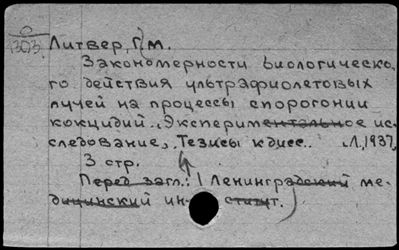 1303. Литвер, Г.М.
Закономерности биологическо-
го действия ультрафиолетовых
лучей на процессы спорогонии
кокцидий. Экспериментальное ис-
следование. Тезисы к дисс. Л., 1937.
3 стр.
Перед загл.: Ленинградский ме-
дицинский ин-ститут.)